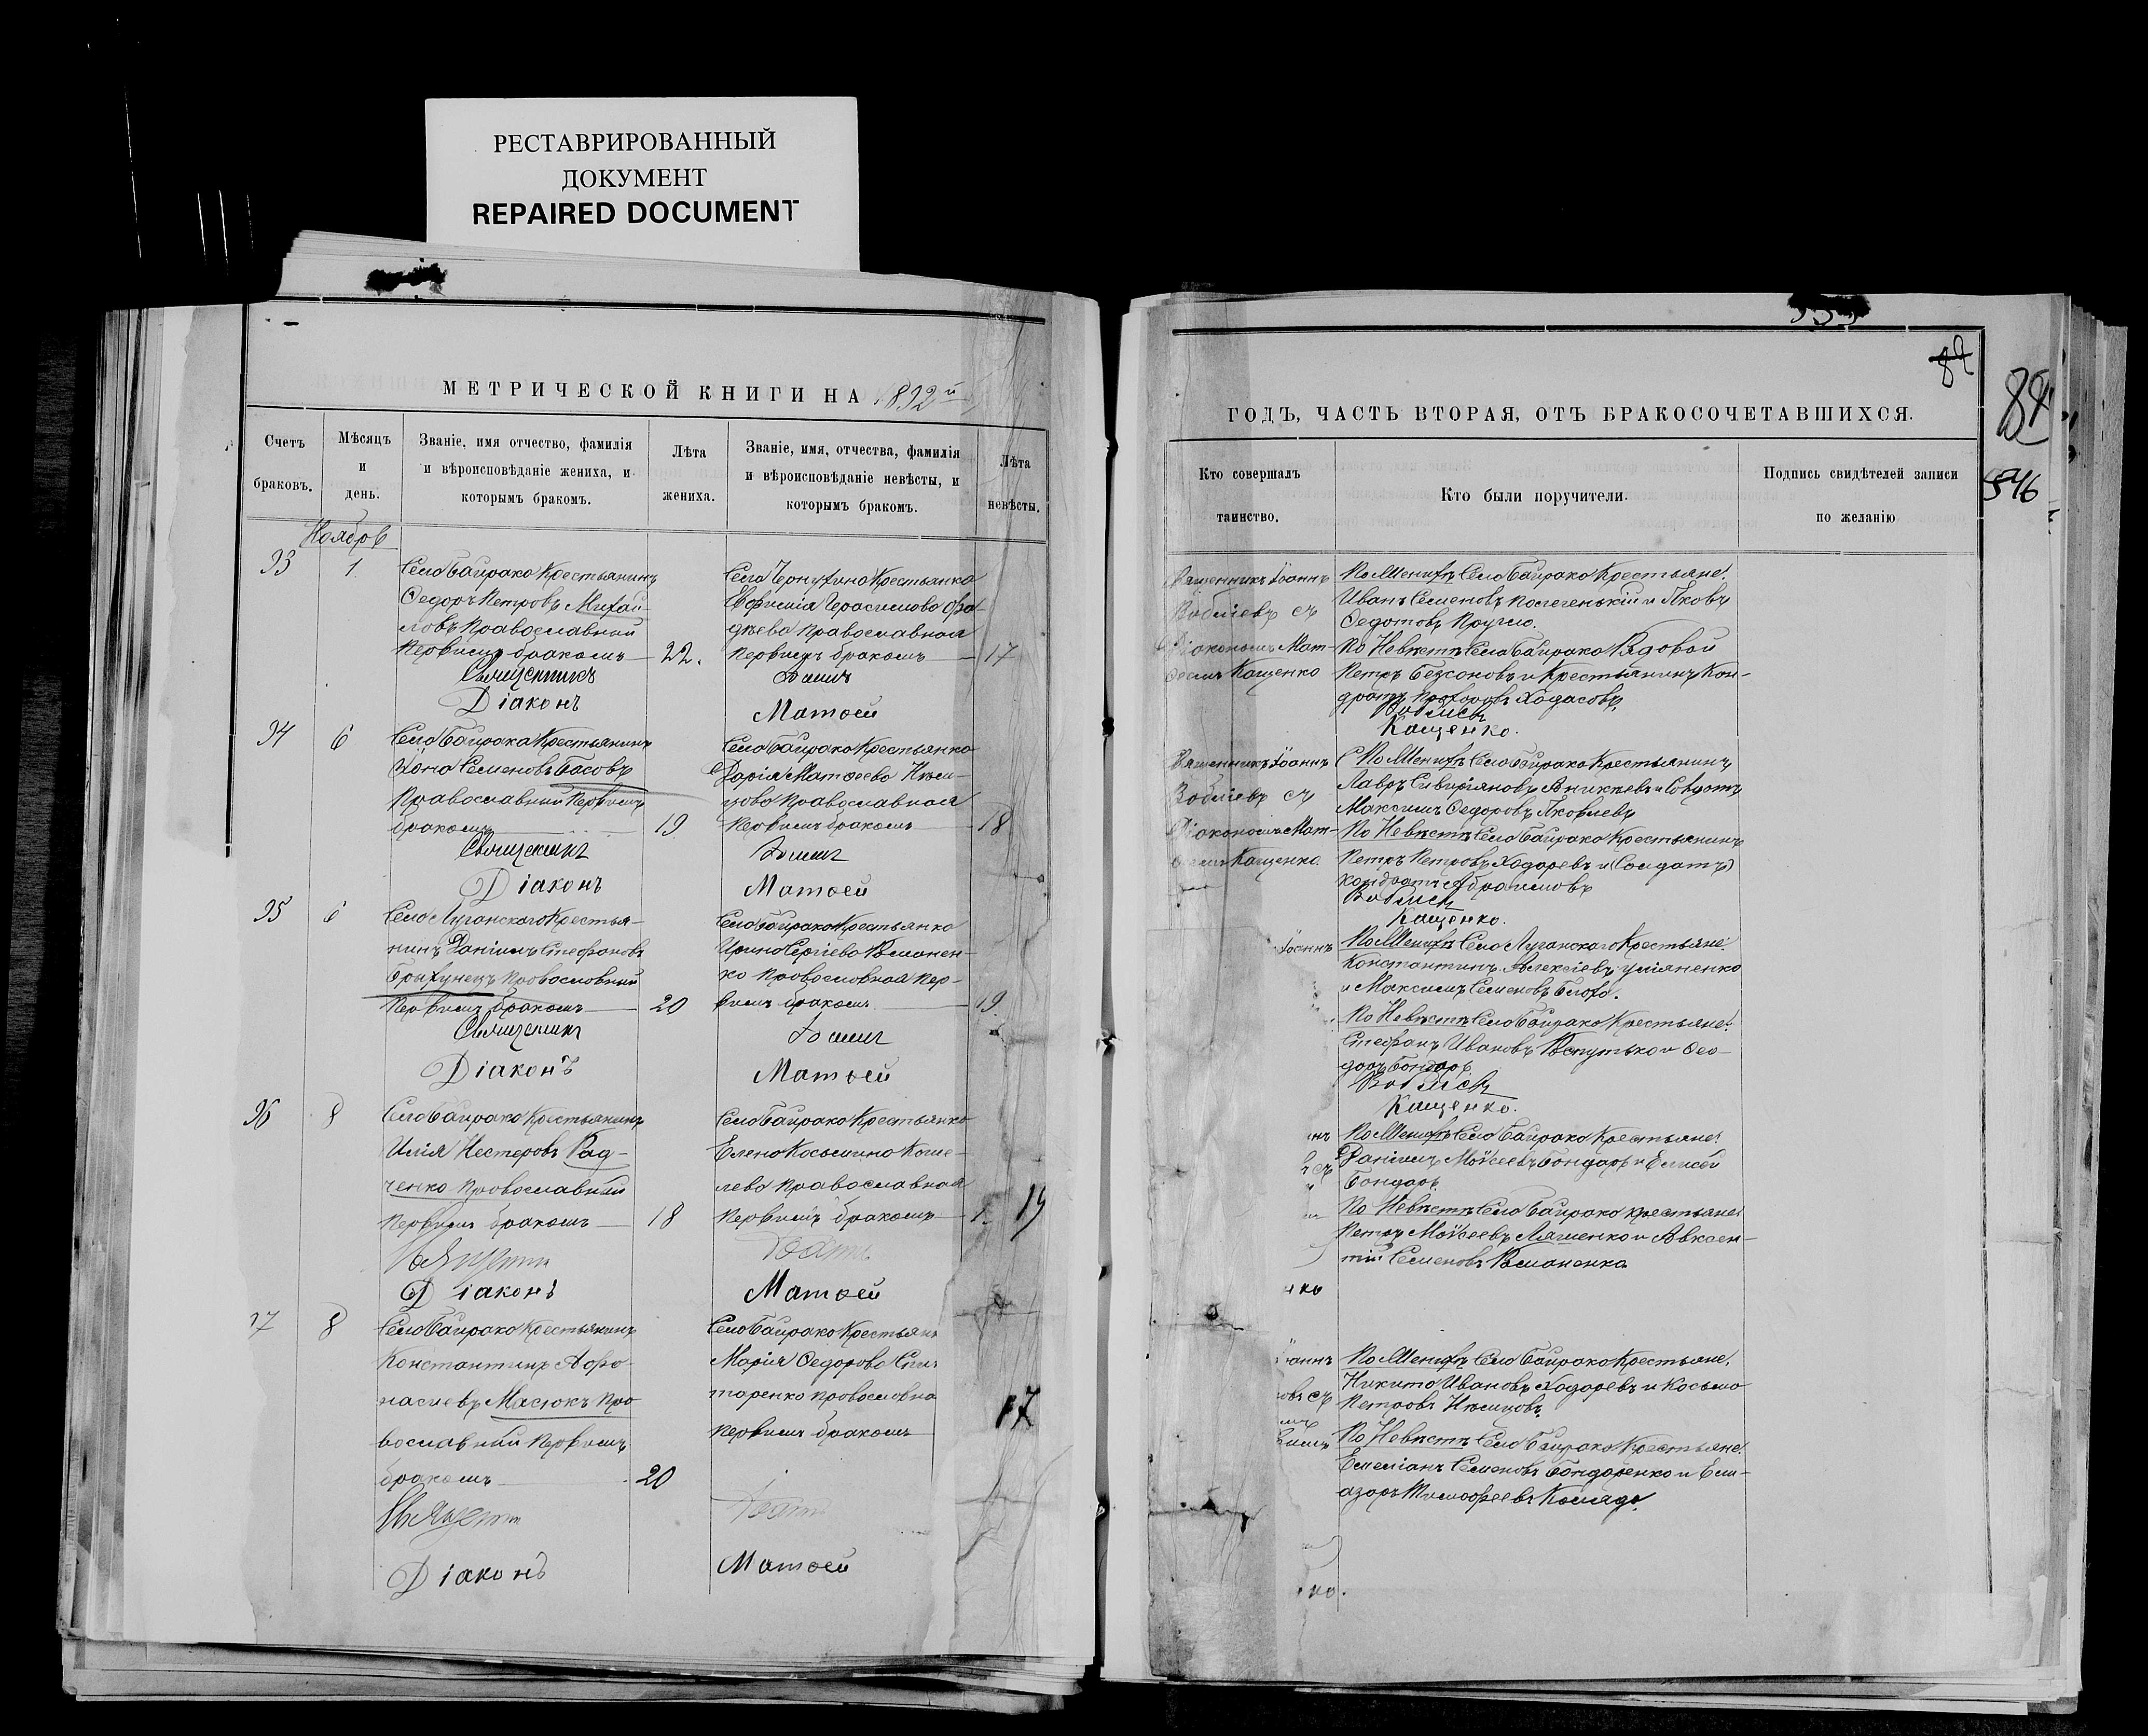 РЕСТАВРИРОВАННЫЙ
ДОКУМЕНТ
REPAIRED DOCUMENT
МЕТРИЧЕСКОЙ КНИГИ НА 1892 й
Счетъ
браковъ.
Мѣсяцъ
и
день.
Званіе, имя отчество, фамилія
и вѣроисповѣданіе жениха, и
которымъ бракомъ.
Лѣта
жениха.
Званіе, имя, отчества, фамилія
и вѣроисповѣданіе невѣсты, и
которымъ бракомъ.
Лѣта
невѣсты.
Ноябрь
93
1.
Села Байрака Крестьянинъ
Федоръ Петровъ Михай-
ловъ Православный
Первымъ бракомъ
22.
Села Крестьянка
Герасимова
Православная
Первымъ бракомъ
17
Священникъ
Іоаннъ
Діаконъ
Матѳей
94
6
Села Байрака Крестьянинъ
Іона Семеновъ Басовъ
Православный Первымъ
бракомъ
19
Села Байрака Крестьянка
Дарія Матѳеева Нѣм-
цова Православная
Первымъ бракомъ
18
Священникъ
Іоаннъ
Діаконъ
Матѳей
95
6
Села Луганскаго Крестья-
нинъ Даніилъ Стефановъ
Брыкунецъ Православный
Первымъ бракомъ
20
Села Байрака Крестьянка
Ирина Сергіева Романен-
ко Православная Пер-
вымъ бракомъ
19.
Священникъ
Іоаннъ
Діаконъ
Матѳей
96
8
Села Байрака Крестьянинъ
Илія Нестеровъ Рад-
ченко Православный
Первымъ бракомъ
18
Села Байрака Крестьянка
Елена Косьмина Коше-
лева Православная
Первымъ бракомъ
19
Діаконъ
Матѳей
97
8
Села Байрака Крестьянинъ
Константинъ Аѳа-
насіевъ Масюкъ Пра
вославный Первымъ
бракомъ
20
Села Байрака Крестьян
Марія Федорова
таренко Православна
Первымъ бракомъ
17
Діаконъ
Матѳей
84
84
546
ГОДЪ, ЧАСТЬ ВТОРАЯ, ОТЪ БРАКОСОЧЕТАВШИХСЯ.
Кто совершалъ
таинство.
Кто были поручители.
Подпись свидѣтелей записи
по желанію
Іоаннъ
съ
Діакономъ Мат-
Кащенко
По Женихѣ Села Байрака Крестьяне:
Иванъ Семеновъ и Яковъ
Федотовъ
По Невѣстѣ Села Байрака Рядовой
Петръ Безсоновъ и Крестьянинъ Кон-
дратъ Прохоровъ Ходасовъ
Кащенко.
Іоаннъ
съ
Діакономъ Мат-
Кащенко
По Женихѣ Села Байрака Крестьянинъ
Лавръ Аникѣевъ и Солдатъ
Максимъ Федоровъ Яковлевъ
По Невѣстѣ Села Байрака Крестьянинъ
Петръ Петровъ Ходаревъ и (Солдатъ)
Кондратъ Абрамовъ
Кащенко.
Іоаннъ
По Женихѣ Села Луганскаго Крестьяне:
Константинъ Алексіевъ
и Максимъ Семеновъ
По Невѣстѣ Села Байрака Крестьяне:
Стефанъ Ивановъ и Фео-
доръ Бондарь
Кащенко.
По Женихѣ Села Байрака Крестьяне:
Даніилъ Моѵсеевъ Бондарь и Елисей
Бондарь
По Невѣстѣ Села Байрака Крестьяне:
Петръ Моѵсеевъ Ляшенко и Авксен-
тій Семеновъ Романенко
По Женихѣ Села Байрака Крестьяне:
Никита Ивановъ Ходаревъ и Косьма
Петровъ Нѣмцовъ
По Невѣстѣ Села Байрака Крестьяне:
Емеліанъ Семеновъ Бондаренко и Ели-
азаръ Тимоѳеевъ Коляда.